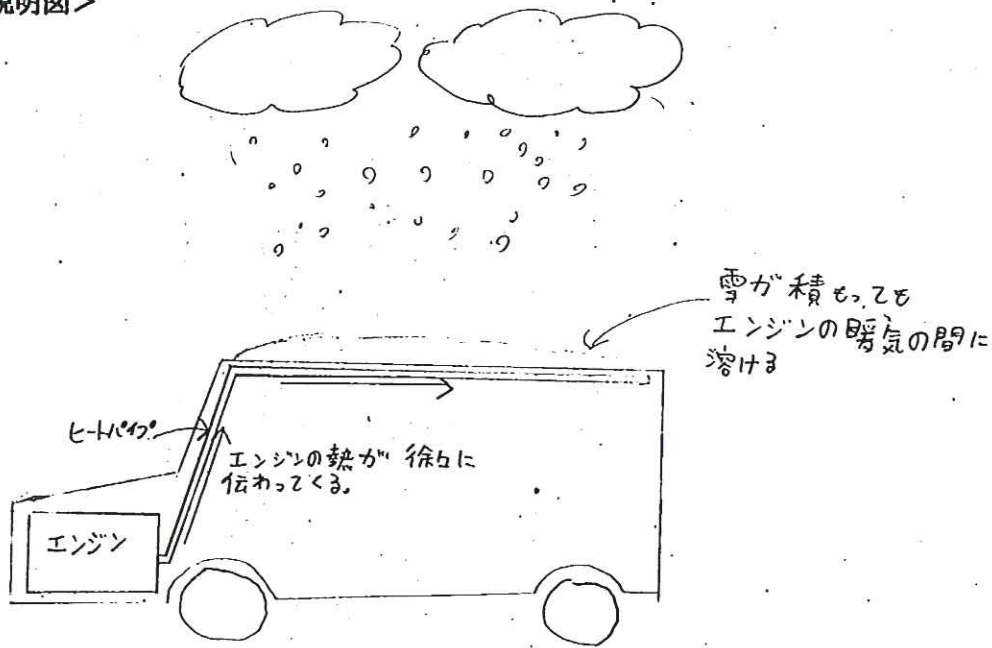 説明図＞
雪が積もっても
エンジンの暖気の間に
溶ける
ヒートパイプ
エンジンの熱が徐々に
伝わってくる。
エンジン